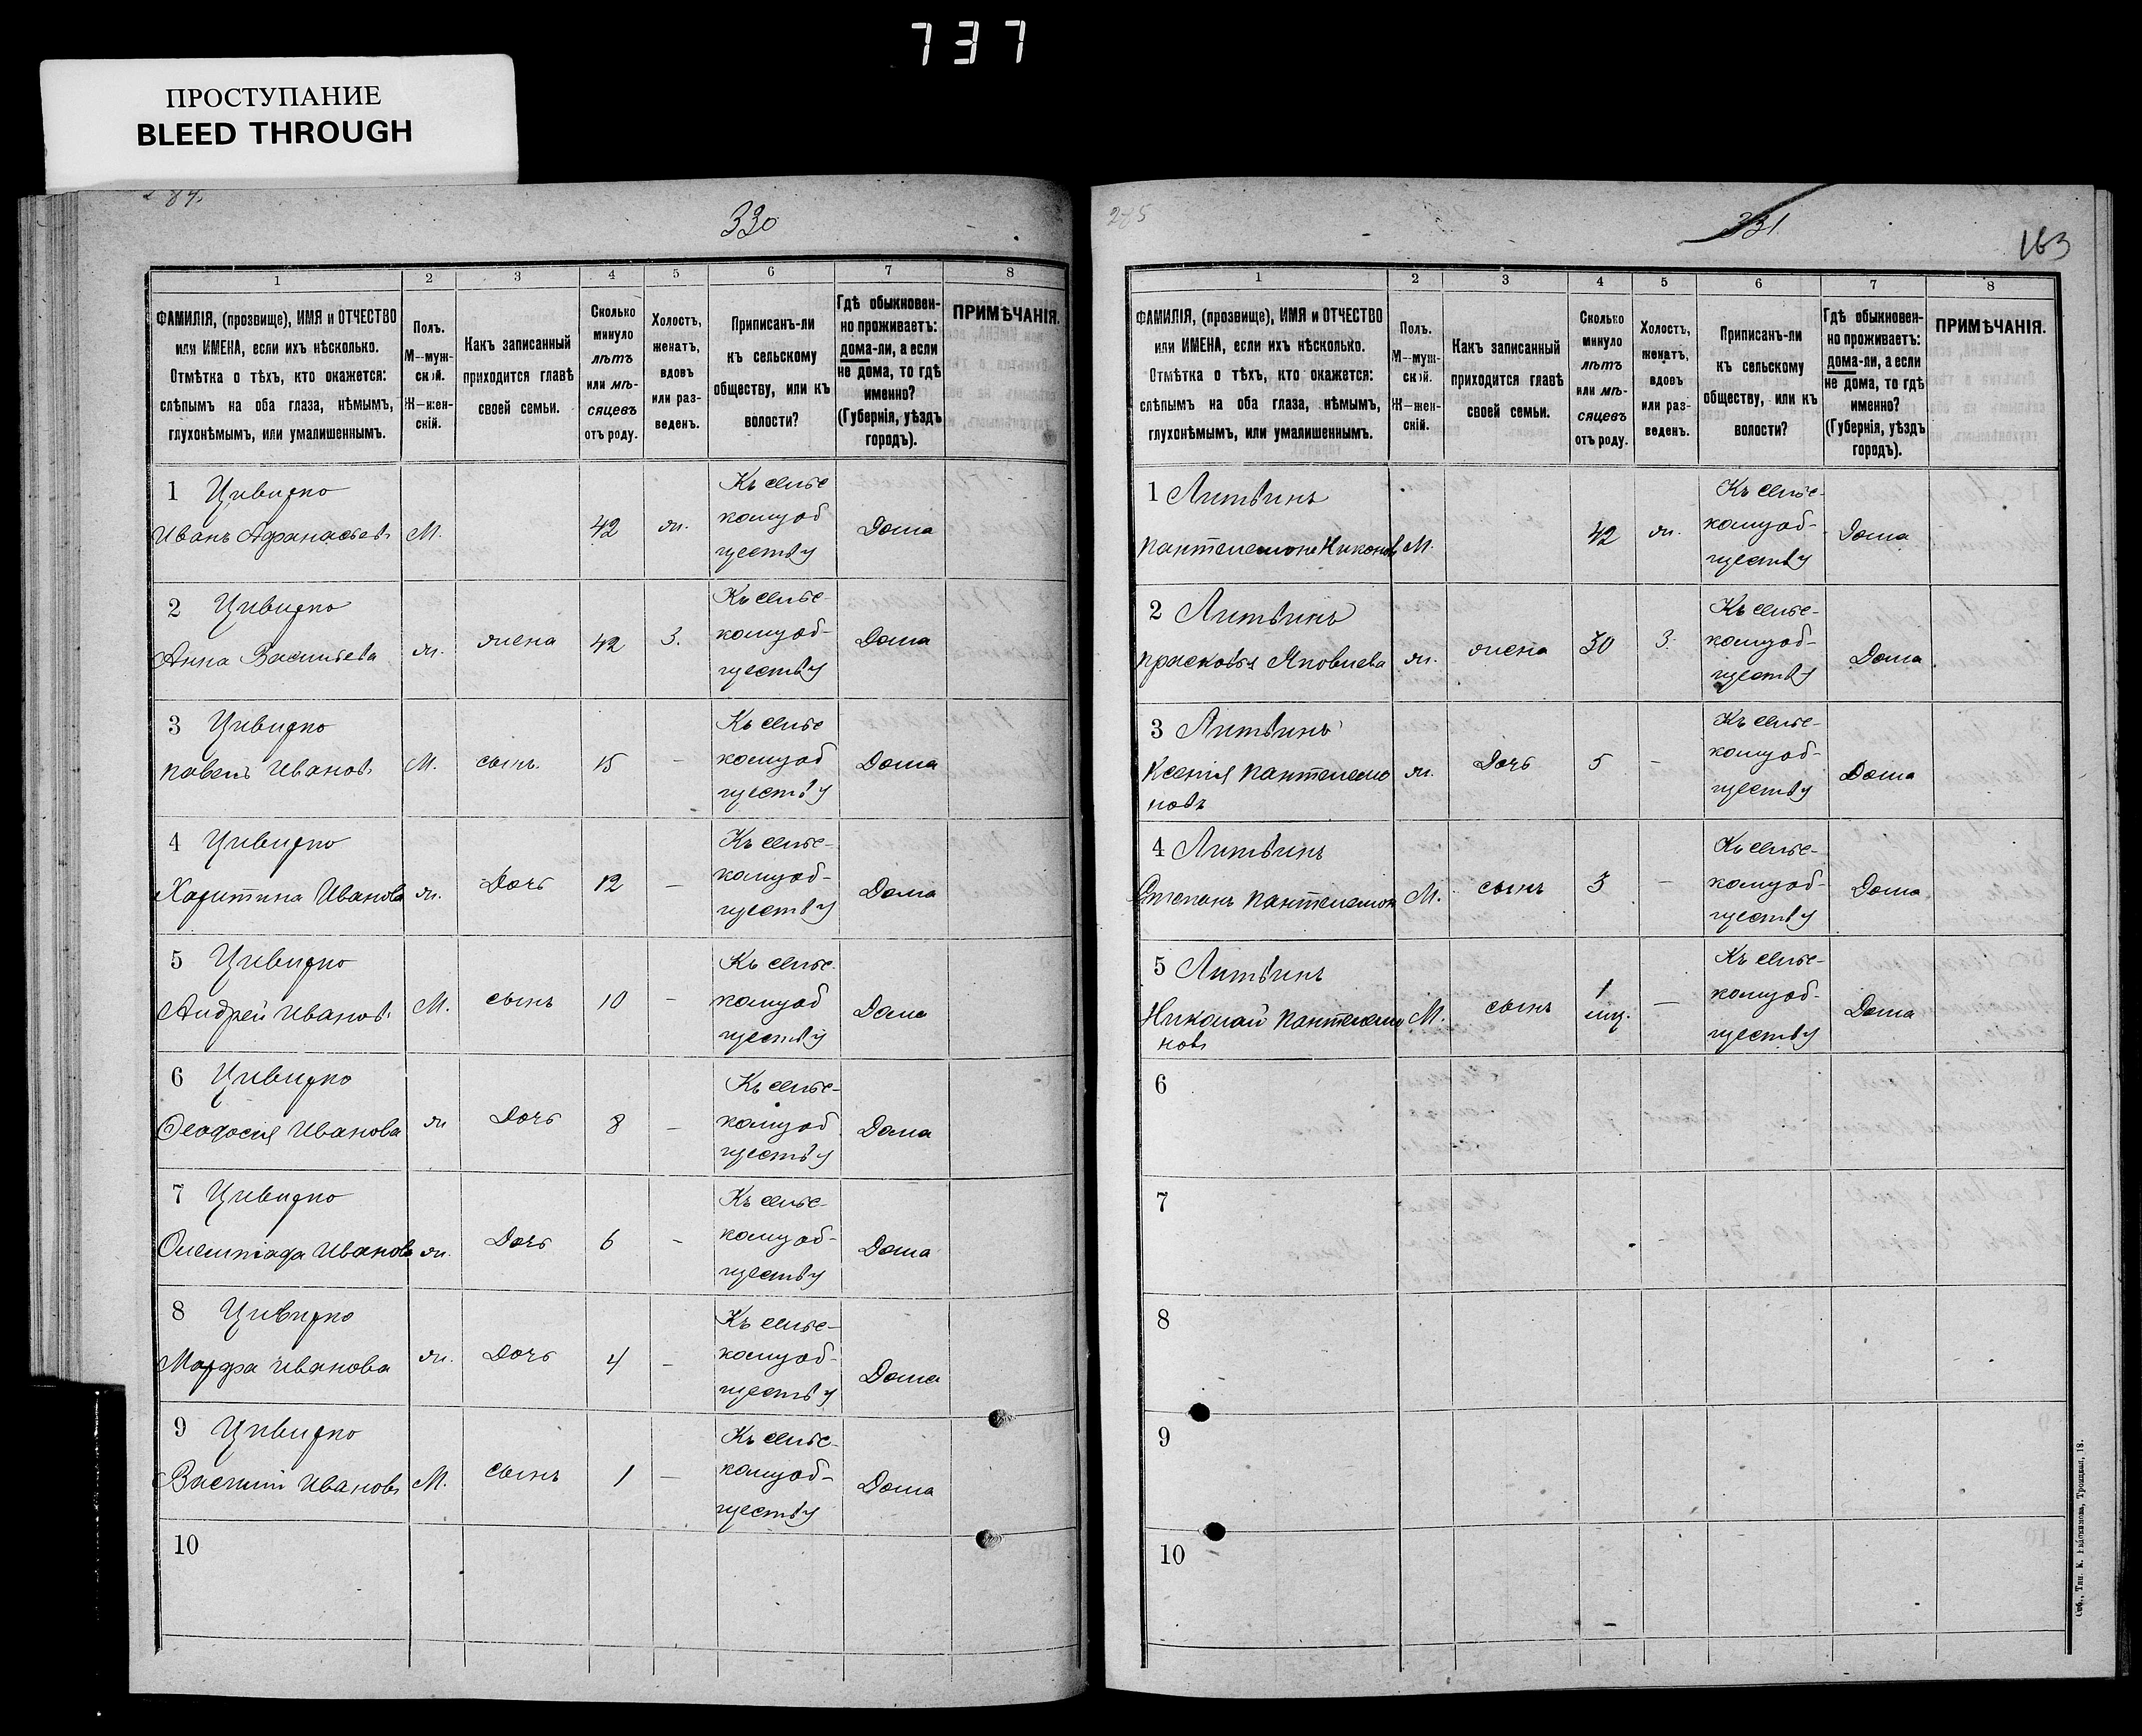 737
ПРОСТУПАНИЕ
BLEED THROUGH
330
1 2 3 4 5 6 7 8
ФАМИЛІЯ, (прозвище), ИМЯ и ОТЧЕСТВО
или ИМЕНА, если ихъ нѣсколько.
Отмѣтка о тѣхъ, кто окажется:
слѣпымъ на оба глаза, нѣмымъ,
глухонѣмымъ, или умалишеннымъ.
Полъ.
М—муж-
ской.
Ж—жен-
скій.
Какъ записанный
приходится главѣ
своей семьи.
Сколько
минуло
лѣтъ
или мѣ-
сяцевъ
отъ роду.
Холостъ,
женатъ,
вдовъ
или раз-
веденъ.
Приписанъ-ли
къ сельскому
обществу, или къ
волости?
Гдѣ обыкновен-
но проживаетъ:
дома-ли, а если
не дома, то гдѣ
именно?
(Губернія, уѣздъ
городъ).
ПРИМѢЧАНІЯ.
1 Цивирко
Иванъ Афанасьевъ М. 42 ж. Дома
Къ сельс
комуоб
ществу
2 Цивирко
Анна Васильева ж. жена 42 З. Дома
Къ сельс-
комуоб-
ществу
3 Цивирко
Павелъ Ивановъ М. сынъ. 15 - Дома
Къ сельс
комуоб
ществу
4 Цивирко
Харитина Иванова ж. Дочь 12 - Дома
Къ сельс-
комуоб-
ществу
5 Цивирко
Андрей Ивановъ М. сынъ 10 - Дома
Къ сельс.
комуоб
ществу
6 Цивирко
Феодосия Иванова ж Дочь 8 - Дома
Къ сельс-
комуоб
ществу
7 Цивирко
Олемпіада Иванова ж. Дочь 6 - Дома
Къ сельс-
комуоб-
ществу
8 Цивирко
Марфа Иванова ж. Дочь 4 - Дома
Къ сельс-
комуоб-
ществу
9 Цивирко
Василій Ивановъ М. сынъ 1 - Дома
Къ сельс-
комуоб-
ществу
10
285
331
163
1 2 3 4 5 6 7 8
ФАМИЛІЯ, (прозвище), ИМЯ и ОТЧЕСТВО
или ИМЕНА, если ихъ нѣсколько.
Отмѣтка о тѣхъ, кто окажется:
слѣпымъ на оба глаза, нѣмымъ,
глухонѣмымъ, или умалишеннымъ.
Полъ.
М—муж-
ской.
Ж—жен-
скій.
Какъ записанный
приходится главѣ
своей семьи.
Сколько
минуло
лѣтъ
или мѣ-
сяцевъ
отъ роду.
Холостъ,
женатъ,
вдовъ
или раз-
веденъ.
Приписанъ-ли
къ сельскому
обществу, или къ
волости?
Гдѣ обыкновен-
но проживаетъ:
дома-ли, а если
не дома, то гдѣ
именно?
(Губернія, уѣздъ
городъ).
ПРИМѢЧАНІЯ.
1 Литвинъ
Пантелемонъ Никоновъ М. 42 ж. Дома
Къ сельс-
комуоб-
ществу
2 Литвинъ
Прасковья Яковлева ж. жена 30 З. Дома
Къ сельс-
комуоб-
ществу
3 Литвинъ
Ксенія Пантелемо ж. Дочь 5 - Дома
новъ
Къ сельс-
комуоб-
ществу
4 Литвинъ
Степанъ Пантелемон М. сынъ 3 - Дома
Къ сельс-
комуоб-
ществу
5 Литвинъ
Николай Пантелемо М. сынъ 1 мц. - Дома
новъ
Къ сельс-
комуоб-
ществу
6
7
8
9
10
Спб., Тип. К. Евдокимова, Троицкая, 18.